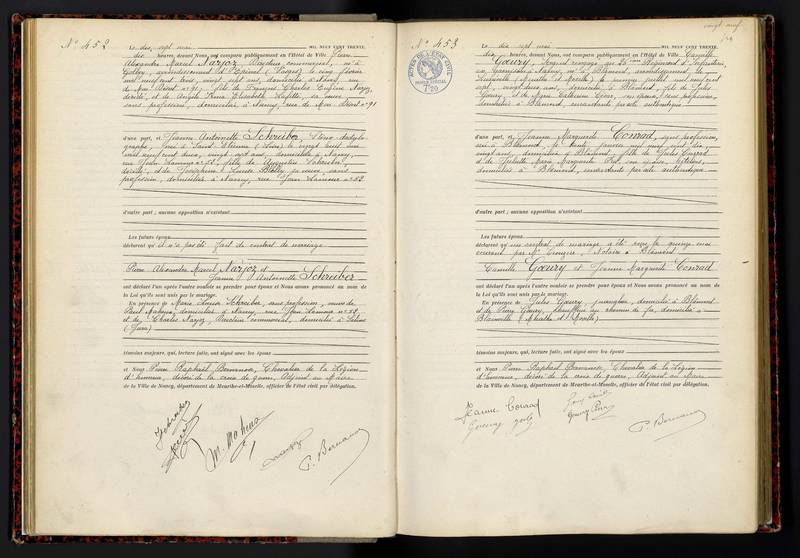 N° 452
Le dix sept mai MIL NEUF CENT TRENTE,
dix heures, devant Nous, ont comparu publiquement en l'Hôtel de Ville Pierre
Alexandre Marcel Narjoz, Directeur commercial, né à
Golbey, arrondissement d'Épinal (Vosges) le cinq février
mil neuf cent trois, vingt sept ans, domicilié à Nancy, rue
de Mon Désert n° 91, fils de François Charles Eugène Narjoz,
décédé, et de Angèle Anna Elisabeth Lafitte, sa veuve,
sans profession, domiciliée à Nancy, rue de Mon Désert n° 91
d'une part, et Jeanne Antoinette Schreiber, sténo-dactylo-
graphe, née à Saint Etienne (Loire) le vingt huit
mil neuf cent deux, vingt sept ans, domiciliée à Nancy,
rue Jean Lamour n° 52, fille de Augustin Schreiber,
décédé, et de Joséphine Louise sa veuve, sans
profession, domiciliée à Nancy, rue Jean Lamour n° 52
d'autre part ; aucune opposition n'existant
Les futurs époux
déclarent qu'il n'a pas été fait de contrat de mariage
Pierre Alexandre Marcel Narjoz et
Jeanne Antoinette Schreiber
ont déclaré l'un après l'autre vouloir se prendre pour époux et Nous avons prononcé au nom de
la Loi qu'ils sont unis par le mariage.
En présence de Marie Louise Schreiber, sans profession, veuve de
Paul Mahieu, domiciliée à Nancy, rue Jean Lamour n° 52
et de Charles Narjoz, Directeur commercial, domicilié à Salins
(Jura)
témoins majeurs, qui, lecture faite, ont signé avec les époux
et Nous Pierre Raphaël Bernanose, Chevalier de la Légion
d'honneur, décoré de la croix de guerre, Adjoint au Maire
de la Ville de Nancy, département de Meurthe-et-Moselle, officier de l'état civil par délégation.
N° 453
Le dix sept mai MIL NEUF CENT TRENTE,
dix heures, devant Nous, ont comparu publiquement en l'Hôtel de Ville Camille
Gœury, Sergent rengagé au 26ème Régiment d'Infanterie,
en garnison à Nancy, né à Blâmont, arrondissement de
Lunéville (Meurthe et Moselle) le premier juillet mil neuf cent
sept, vingt deux ans, domicilié à Blâmont, fils de Jules
Gœury et de Marie Catherine son épouse, sans profession,
domiciliés à Blâmont, consentants par acte authentique
d'une part, et Jeanne Marguerite Conrad, sans profession,
née à Blâmont, le trente janvier mil neuf cent dix,
vingt ans, domiciliée à Blâmont, fille de Jules Conrad
et de Juliette Marie Marguerite son épouse,
domiciliés à Blâmont, consentants par acte authentique
d'autre part ; aucune opposition n'existant
Les futurs époux
déclarent qu'un contrat de mariage a été reçu le quinze mai
courant par Me Notaire à Blâmont
Camille Gœury et Jeanne Marguerite Conrad
ont déclaré l'un après l'autre vouloir se prendre pour époux et Nous avons prononcé au nom de
la Loi qu'ils sont unis par le mariage.
En présence de Jules Gœury, domicilié à Blâmont
et de Pierre Gœury, chauffeur au chemin de fer, domicilié à
Blainville (Meurthe et Moselle)
témoins majeurs, qui, lecture faite, ont signé avec les époux
et Nous Pierre Raphaël Bernanose, Chevalier de la Légion
d'honneur, décoré de la croix de guerre, Adjoint au Maire
de la Ville de Nancy, département de Meurthe-et-Moselle, officier de l'état civil par délégation.
Jeanne Conrad